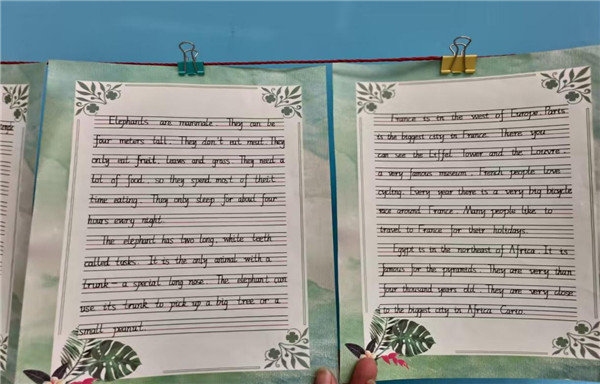 Elephants are mammale. They can be
four meters tall. They don't eat meat. They
only eat fruit, leaves and grass. They need a
lot of food, so they spend most of their
time eating. They only sleep for about four
hours every night.
The elephant has two long, white teeth
called tusks. It is the only animal with a
trunk - a special long nose. The elephant can
use its trunk to pick up a big tree or a
small peanut.
France is in the west of Europe. Paris
is the biggest city in France. There you
can see the Eiffel Tower and the Louvre,
a very famous museum. French people love
cycling. Every year there is a very big bicycle
race around France. Many people like to
travel to France for their holidays.
Egypt is in the northeast of Africa. It is
famous for the pyramids. They are very than
four thousand years old. They are very close
to the biggest city in Africa Cairo.